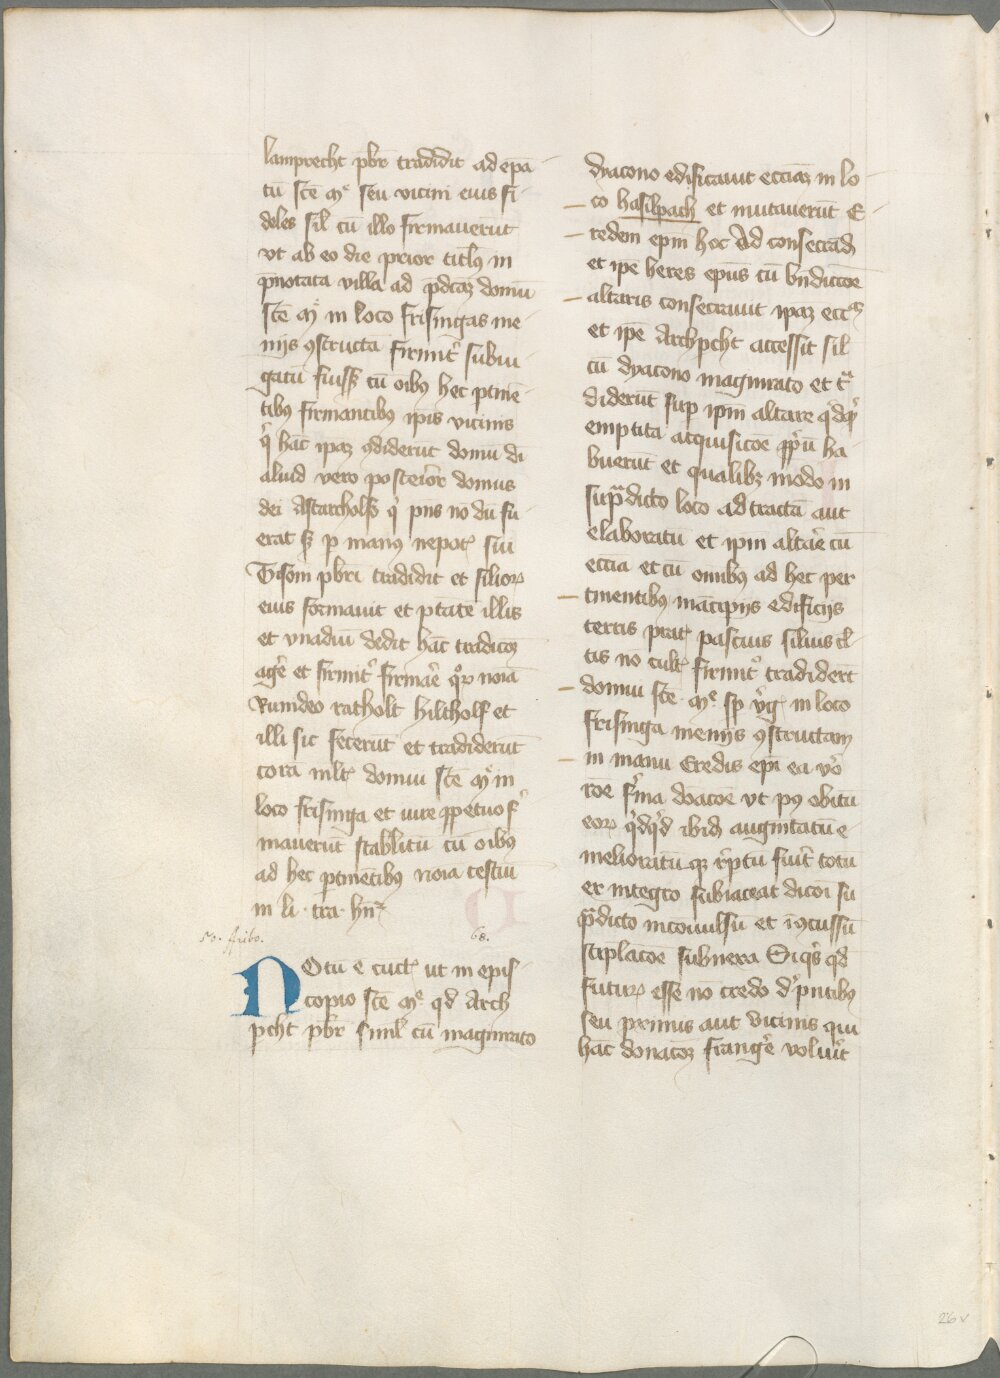 lamprecht pbr̄ tradidit ad epā
tū scē mͤ seu vicini eius fi
deles sil̄ cū illo firmauerūt
vt ab eo die prior titl̄us in
p̄notata villa ad p̄dcāꝫ domū
scē mͤ in loco frisingas me
nijs ꝯstructa firmit̾ subiu
gatū fuiss̄ cū oīb9 hec ptinē
tib9 firmantib9 ip̄is vicinis
q̄ hāc ip̄aꝫ ꝯdiderūt domū di
aliud vero posterior̄ domus
dei Astarcholf9 q̄ pn̄s nō dū fu
erat sꝫ p man9 nepot̄ sui
Tisom pbr̄i tradidit et filioꝝ
eius formauit et ptātē illis
et vnadiū dedit hāc tradicōꝫ
ager̄ et firmit̾ firmar̄e qͦꝝ noīa
Rumdeo ratholt hiltholf et
illi sic fecerūt et tradiderūt
corā mlt̄ domui scē mͤ in
loco frisinga et iure ꝑpetuo f̾
mauerūt stablitū cū oīb9
ad hec ptinētib9 noīa testiū
in li· tra· hn̄t
68.
Notū ē cūct̄ ut in epis
copio scē mͤ qd̄ Arch
pcht pbr̄ simĺ cū maginrato
dyacono edificauit ecciāꝫ in lo
co hasilpach et inuitauerūt E
redem ep̄m hoc ad consecrād̄
et ip̄e heres ep̄us cū bn̄dictōe
altaris consecrauit ip̄aꝫ ecc̄ᵃꝫ
et ip̄e Archpcht accessit sil̄
cū dyacono maginrato et tᵃ
diderūt sup ip̄m altare qͥdqͥd
emptita atquisicōe ꝓpͥū ha
buerūt et qualibꝫ modo in
supᵃdicto loco ad tractā aut
elaboratū et ip̄m altar̄e cū
eccīa et cū omibus ad hec per
tinentib9 mācipijs edificijs
terris prat̄ pascuis siluis cl̄
tis nō cult̄ firmit̾ tradider̄t
domui scē· mͤ sp̄ vͥḡ in loco
frisinga menijs ꝯstructam
in manu Eredis ep̄i ea vͦo
rōe fͥma dōacōe vt p9 obitū
eoꝝ qͥdqͥd ibid̄ augm̄tatū e
melioratū qꝫ r̾ptū fuit̾ totū
ex integro subiaceat dicōi su
pᵃdicto inconuulsū et īꝯcussū
stiplacōe subnexa Siq̄s qd̄
futuꝝ esse nō credo dͤ pn̄tib9
seu pximis aut vicinis qui
hāc donacōꝫ franger̄e voluīt
26 v